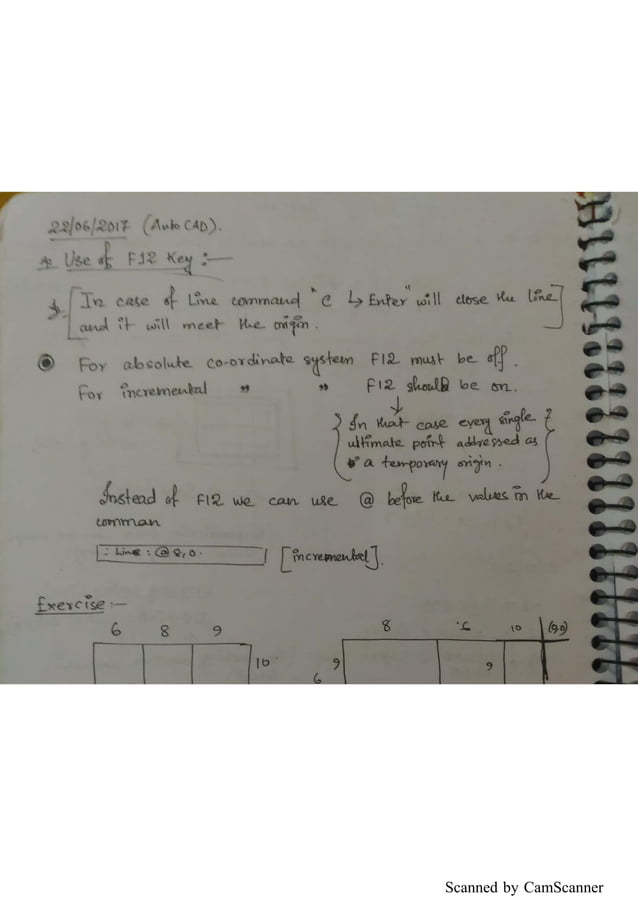 22/06/2017 (Auto CAD).
Use of F12 Key :—
[In case of Line command "C ↳ Enter" will close the line
and it will meet the origin.]
For absolute co-ordinate system F12 must be off.
For incremental " " F12 should be on.
↓
{In that case every single
ultimate point addressed as
a temporary origin.}
Instead of F12 we can use @ before the values in the
comman
: Line : @ 8,0. [incremental].
Exercise :—
6 8 9 8 10
10 9 9
6
Scanned by CamScanner